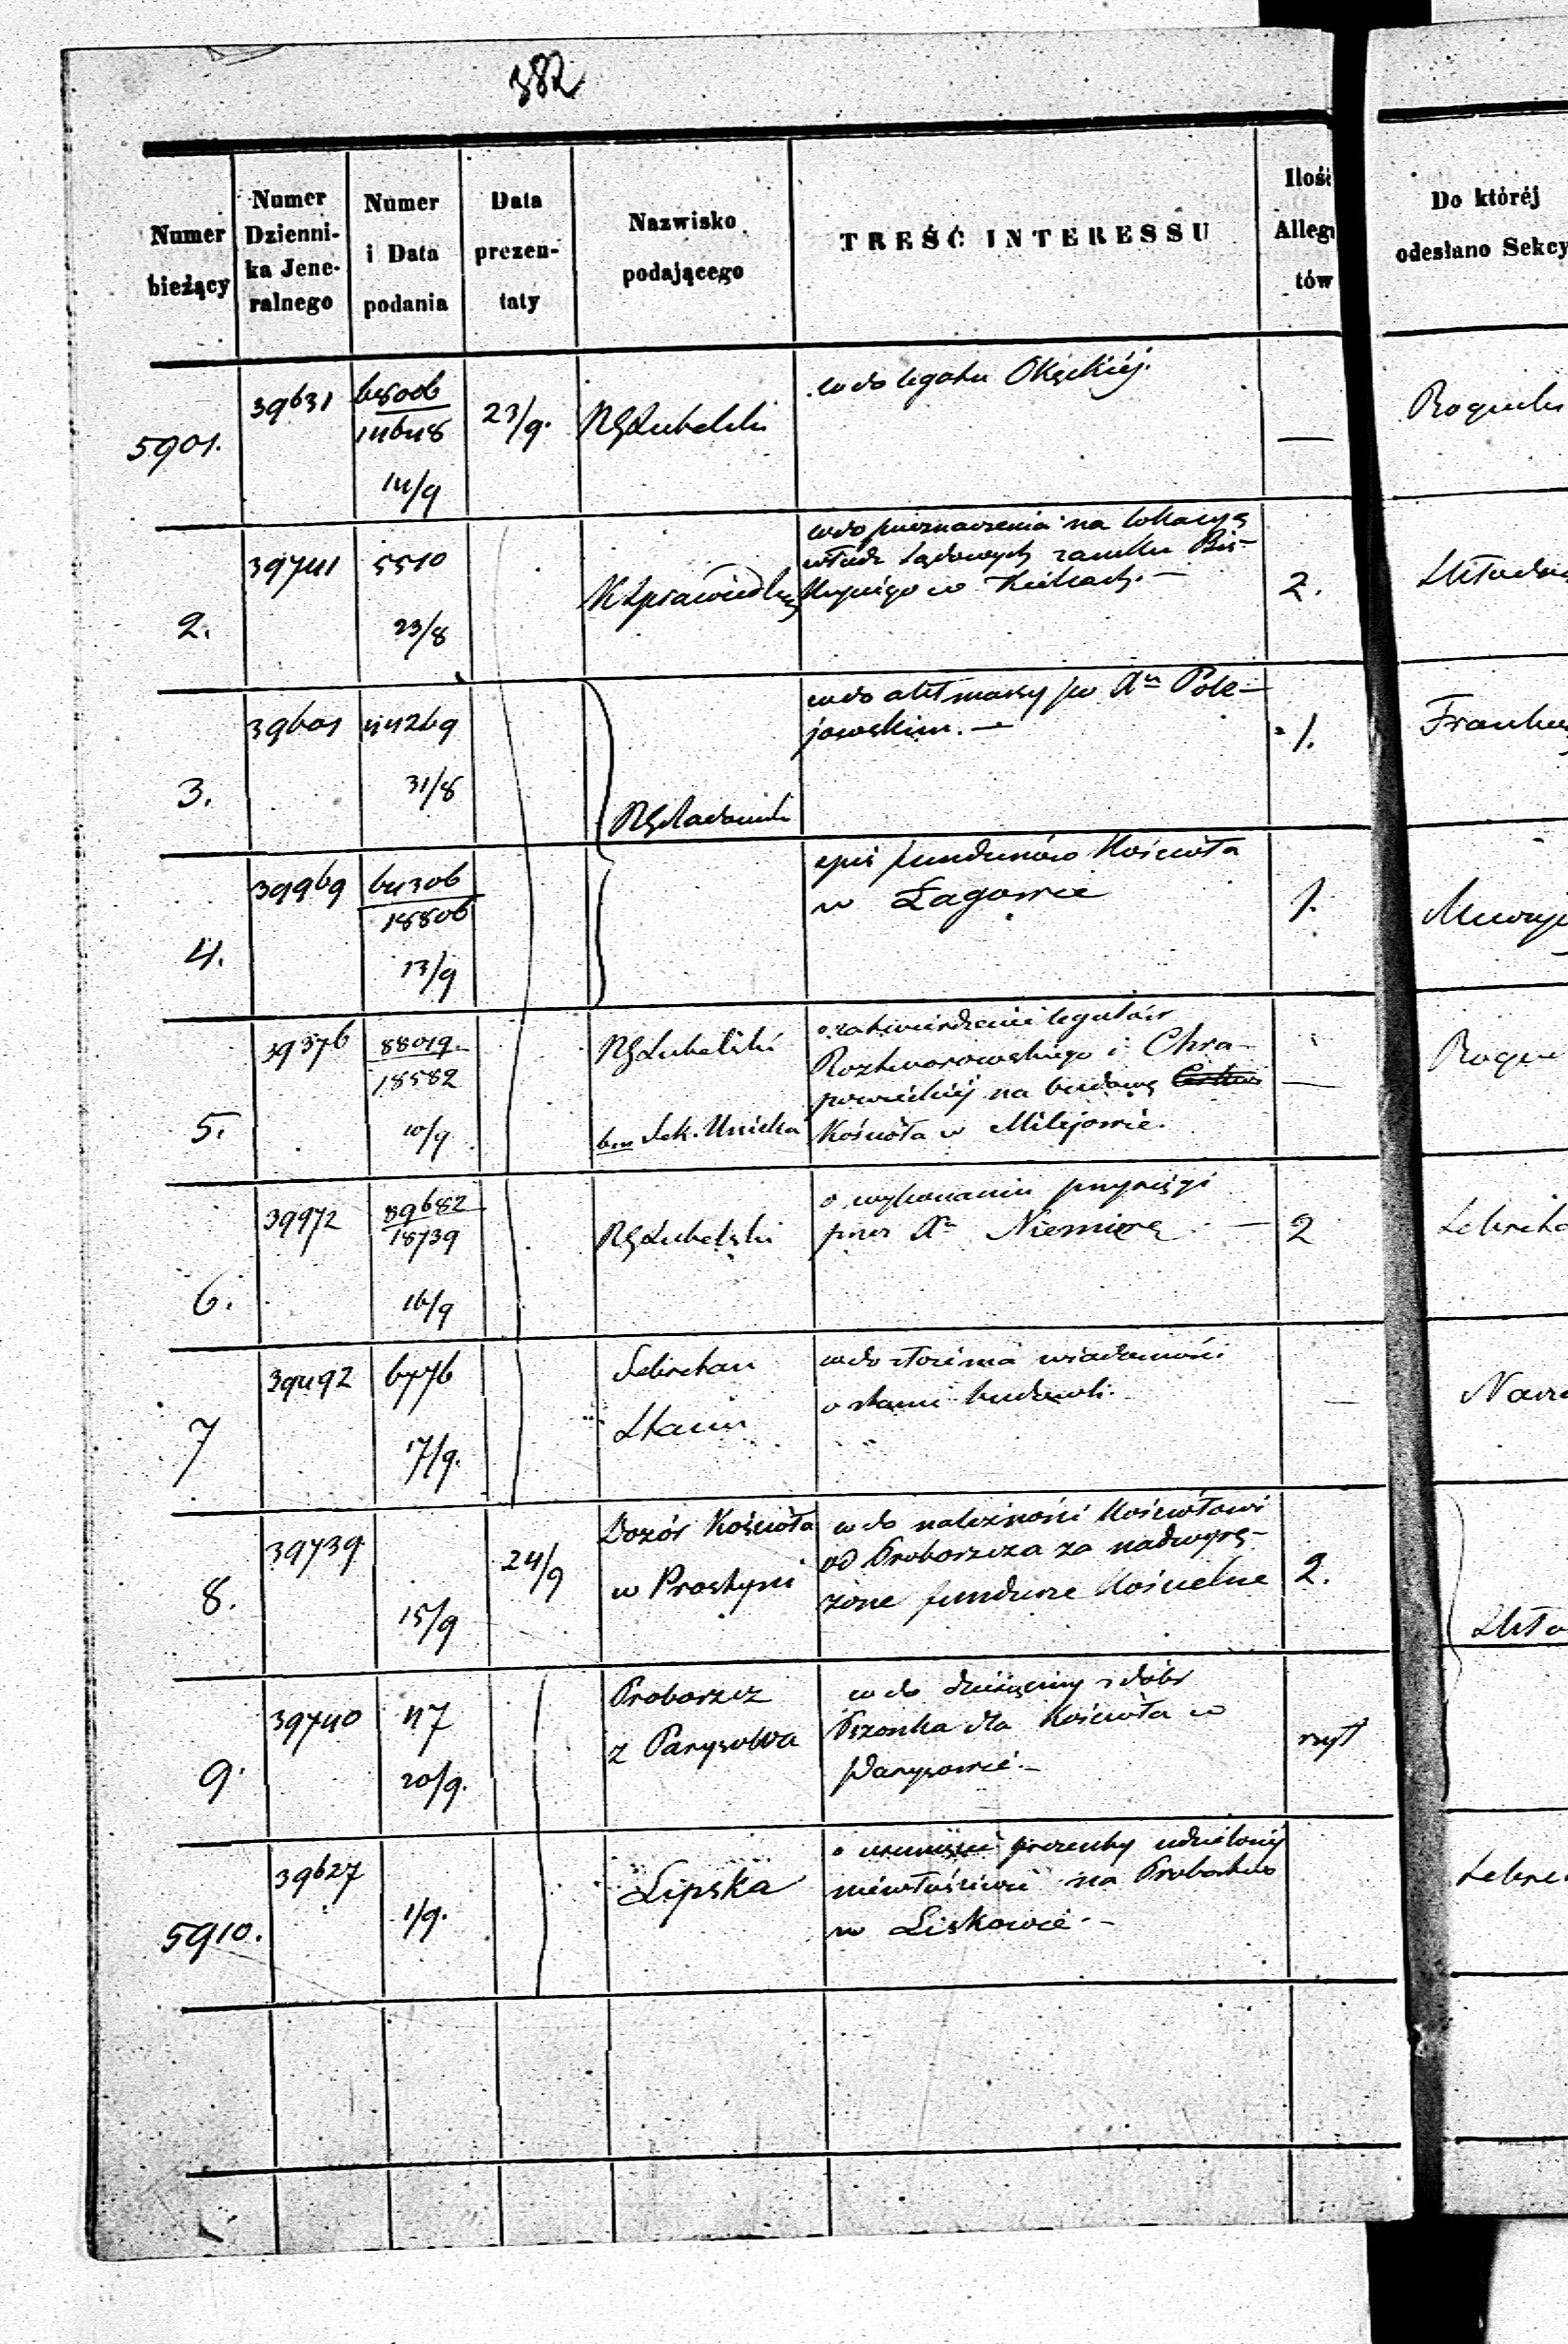 382
Numer bieżący
Numer Dzienni- ka Jene- ralnego
Numer i Data podania
Data prezen- taty
Nazwisko podającego
TREŚĆ INTERESSU
Ilość Allega tów
Do któréj odesłano Sekcy
5901.
39631
68006
14648
14/9
23/9.
RGLubelski
co do legatu Okęckiéj.
—
2.
39741
5510
23/8
KSprawiedliw
co do przeznaczenia na lokacyą
władz Sądowych zamku Bis-
kupiego w Kielcach. —
2.
3.
39601
44269
31/8
RGRadomski
co do akt massy po Xu Pole-
jowskim. —
1.
4.
39969
64306
18806
13/9
opis funduszów Kościoła
w Łagowie
1.
5.
39376
88019
18582
10/9
RGLubelski
Sek. Unicka
o zatwierdzenie legatów
Roztworowskiego i Chra-
powickiéj na budowę
Kościoła w Milejowie.
—
6.
39972
89682
18739
16/9
RGLubelski
o wykonaniu przysięgi
przez Xa Niemirę —
2
7
39492
6776
17/9.
Sekretarz
Stanu
co do złożenia wiadomości
o stanie budowli.
—
8.
39739
15/9
24/9
Dozór Kościoła
w Prostyni
co do należności Kościołowi
od Proboszcza za nadwyrę-
żone fundusze Kościelne
2.
9.
39740
47
20/9.
Proboszcz
z Parysowa
co do dziesięciny z dóbr
Pszonka dla Kościoła w
Parysowie. —
5910.
39627
1/9.
Lipska
o prezenty udzielonéj
niewłaściwie na Probostwo
w Liskowie. —